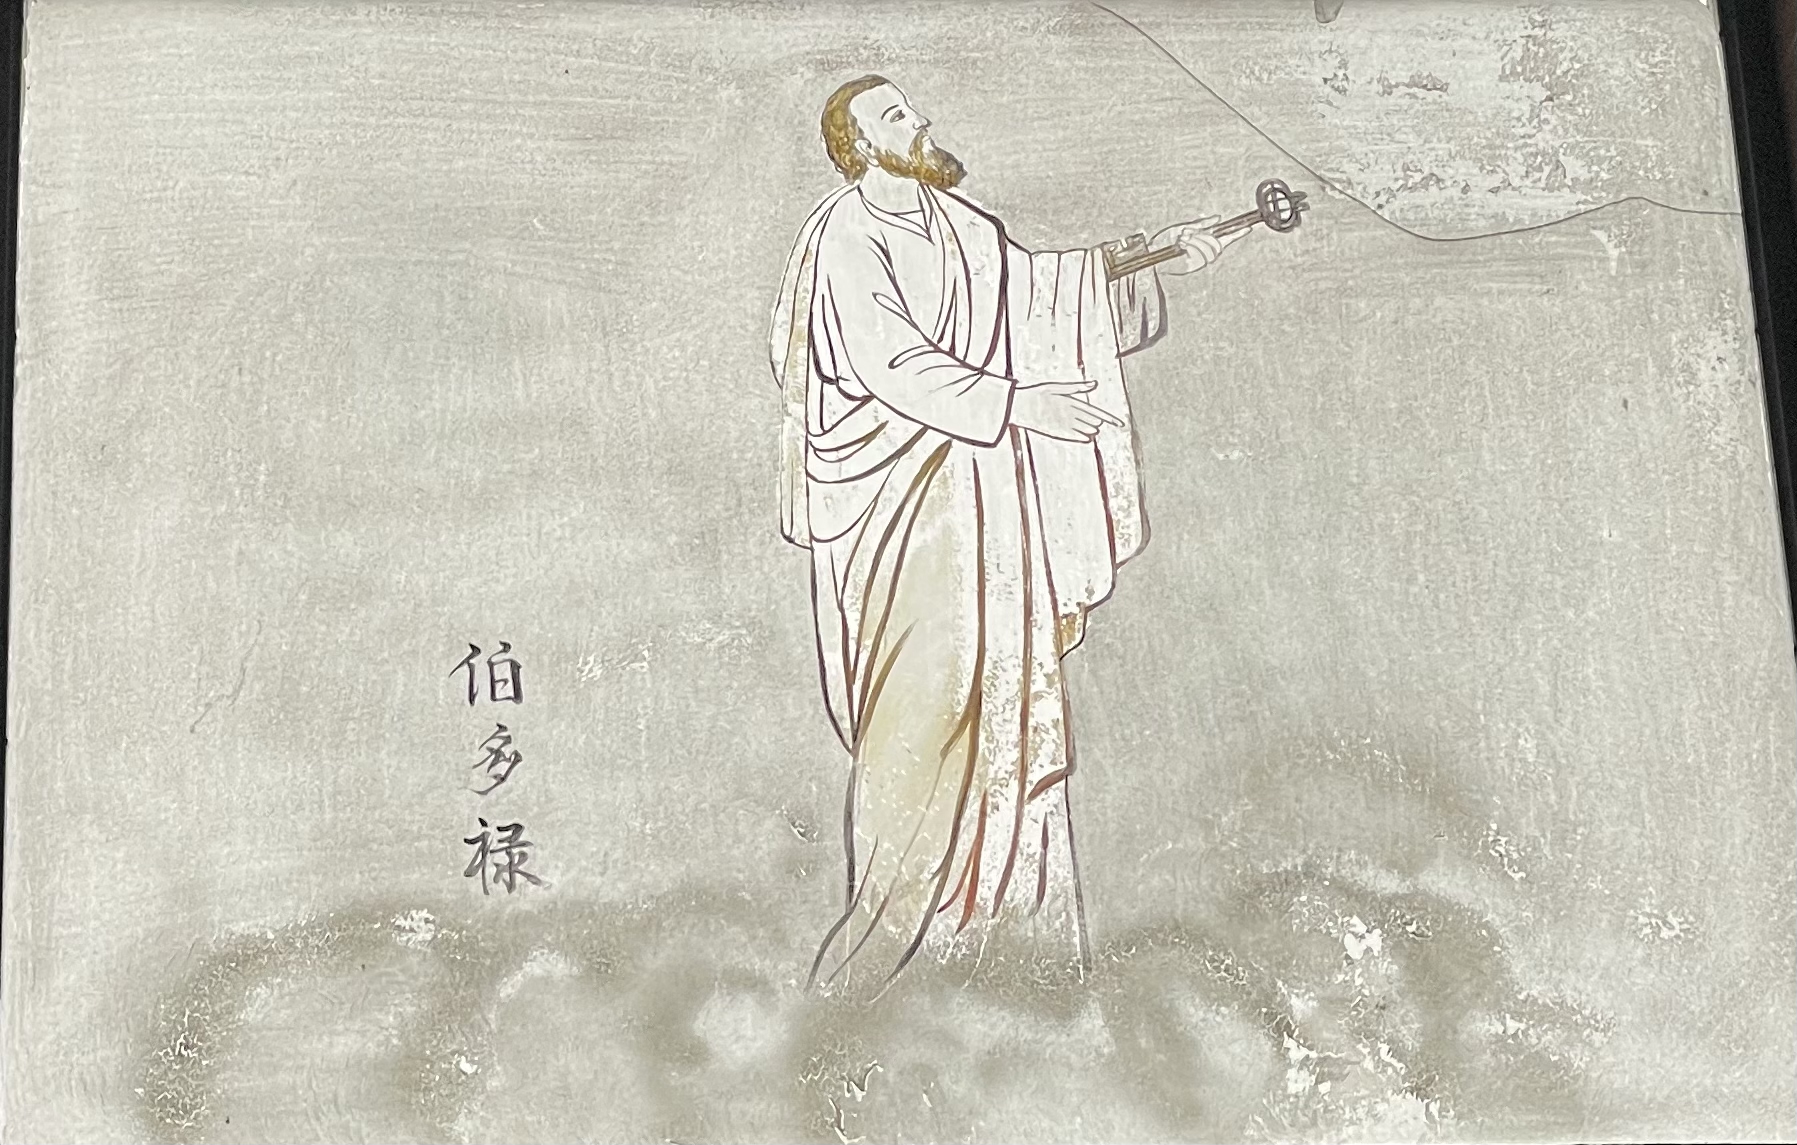 伯多禄